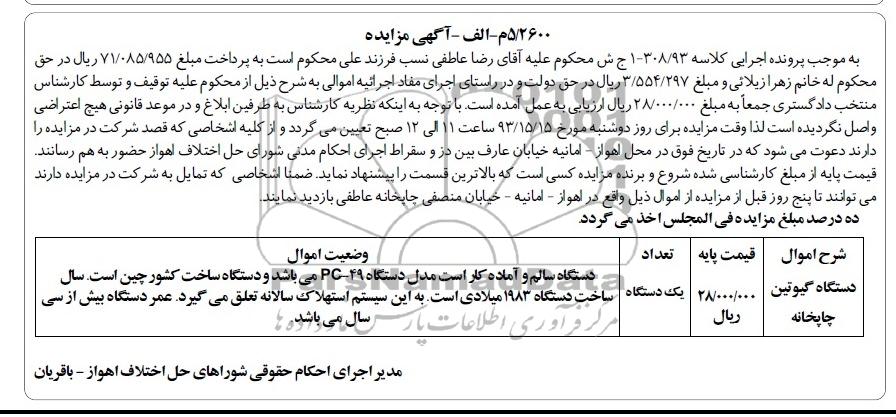 ۵/۲۶۰۰م-الف -آگهی مزایده
به موجب پرونده اجرایی کلاسه ۳۰۸/۹۳-۱ ج ش محکوم علیه آقای رضا عاطفی نسب فرزند علی محکوم است به پرداخت مبلغ ۷۱/۰۸۵/۹۵۵ ریال در حق
محکوم له خانم زهرا زیلائی و مبلغ ۳/۵۵۴/۲۹۷ ریال در حق دولت و در راستای اجرای مفاد اجرائیه اموالی به شرح ذیل از محکوم علیه توقیف و توسط کارشناس
منتخب دادگستری جمعاً به مبلغ ۲۸/۰۰۰/۰۰۰ ریال ارزیابی به عمل آمده است. با توجه به اینکه نظریه کارشناس به طرفین ابلاغ و در موعد قانونی هیچ اعتراضی
واصل نگردیده است لذا وقت مزایده برای روز دوشنبه مورخ ۹۳/۱۵/۱۵ ساعت ۱۱ الی ۱۲ صبح تعیین می گردد و از کلیه اشخاصی که قصد شرکت در مزایده را
دارند دعوت می شود که در تاریخ فوق در محل اهواز- امانیه خیابان عارف بین دز و سقراط اجرای احکام مدنی شورای حل اختلاف اهواز حضور به هم رسانند.
قیمت پایه از مبلغ کارشناسی شده شروع و برنده مزایده کسی است که بالاترین قسمت را پیشنهاد نماید. ضمنا اشخاصی که تمایل به شرکت در مزایده دارند
می توانند تا پنج روز قبل از مزایده از اموال ذیل واقع در اهواز - امانیه - خیابان منصفی چاپخانه عاطفی بازدید نمایند.
ده درصد مبلغ مزایده فی المجلس اخذ می گردد.
شرح اموال قیمت پایه تعداد وضعیت اموال
دستگاه گیوتین چاپخانه ۲۸/۰۰۰/۰۰۰ ریال یک دستگاه دستگاه سالم و آماده کار است مدل دستگاه PC-۴۹ می باشد و دستگاه ساخت کشور چین است. سال
ساخت دستگاه ۱۹۸۳ میلادی است. به این سیستم استهلاک سالانه تعلق می گیرد. عمر دستگاه بیش از سی
سال می باشد.
مدیر اجرای احکام حقوقی شوراهای حل اختلاف اهواز - باقریان
ParsNamadData
مرکز فرآوری اطلاعات پارس نماد داده ها